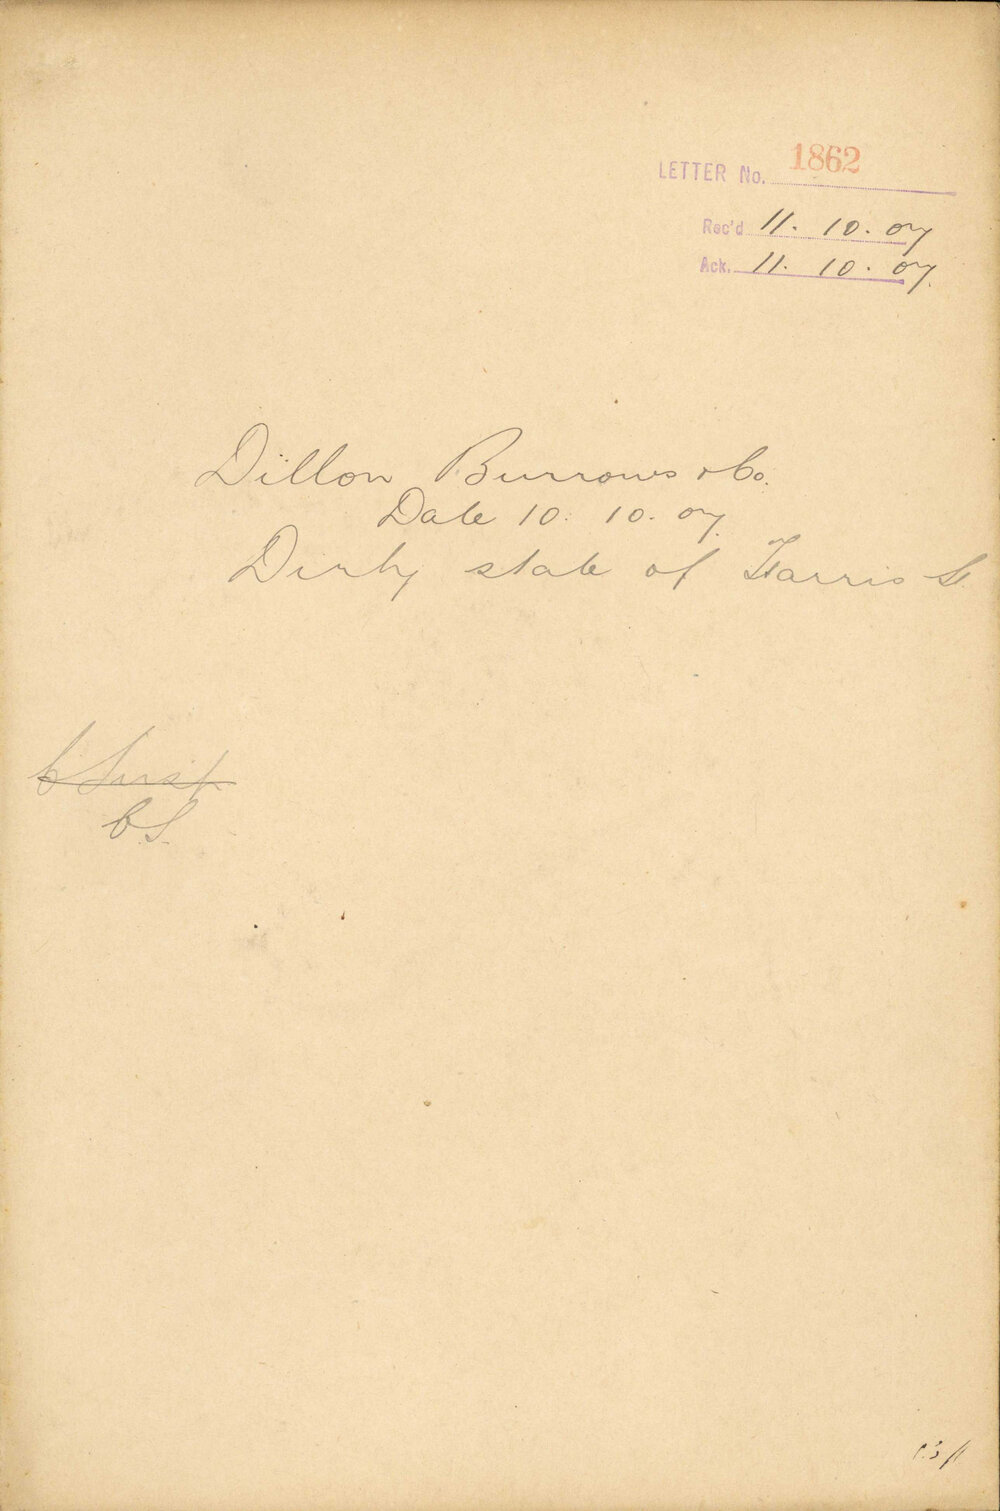 LETTER No. 1862
Rec'd 11. 10. 07
Ack. 11. 10. 07.
Dillon Burrows & Co.
Date 10. 10. 07.
Dirty state of Harris St.
C Insp.
C.S.